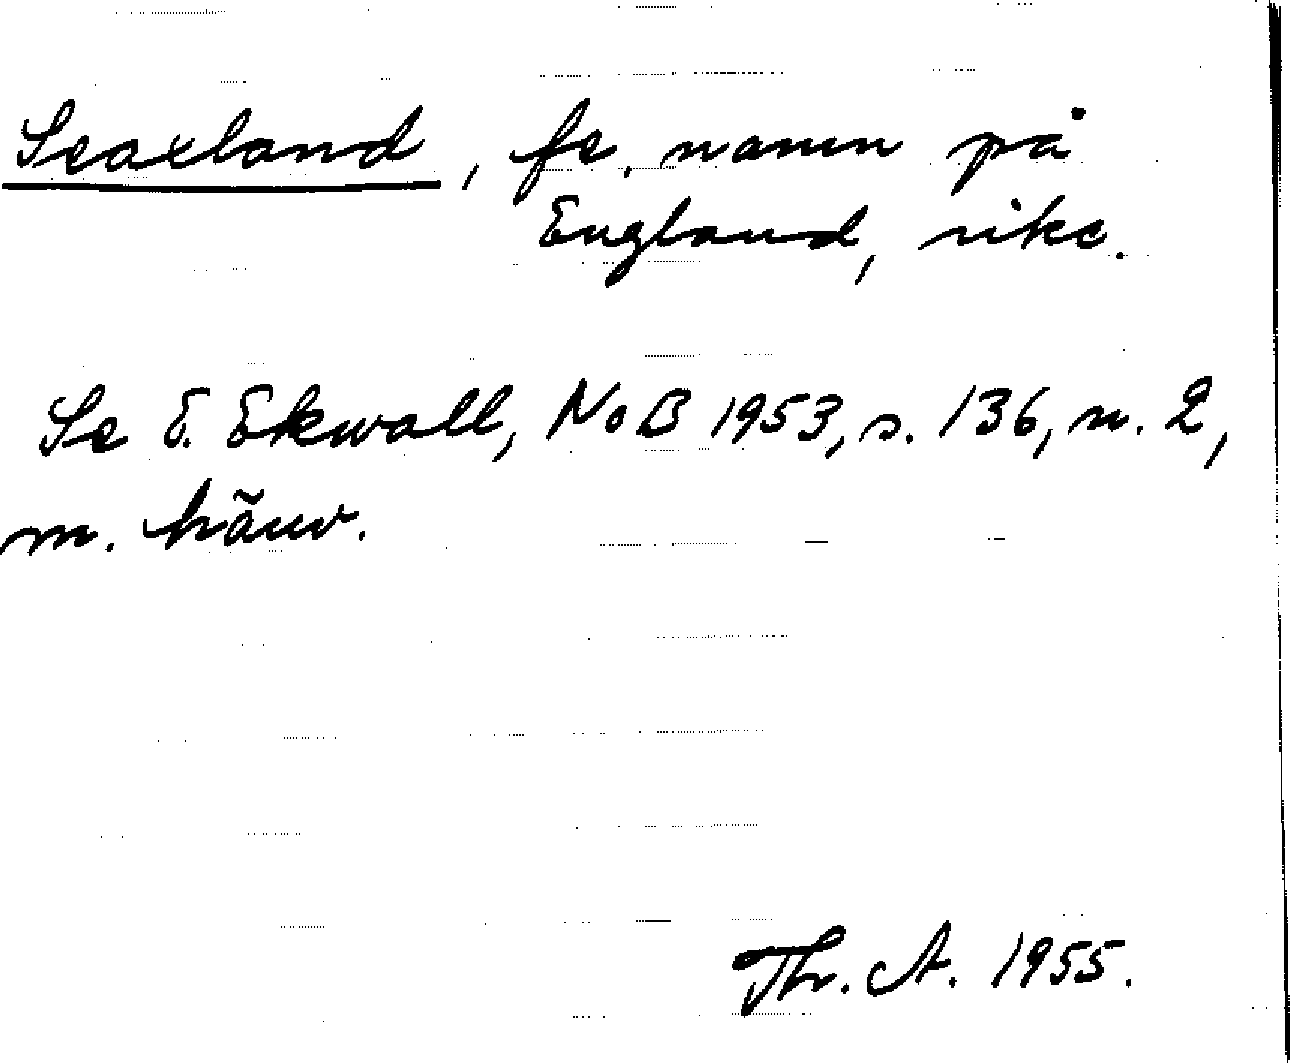 Seaxland, fe. namn på
England, rike.
Se E. Ekwall, NoB 1953, s. 136, n. 2,
m. hänv.
Th. A. 1955.